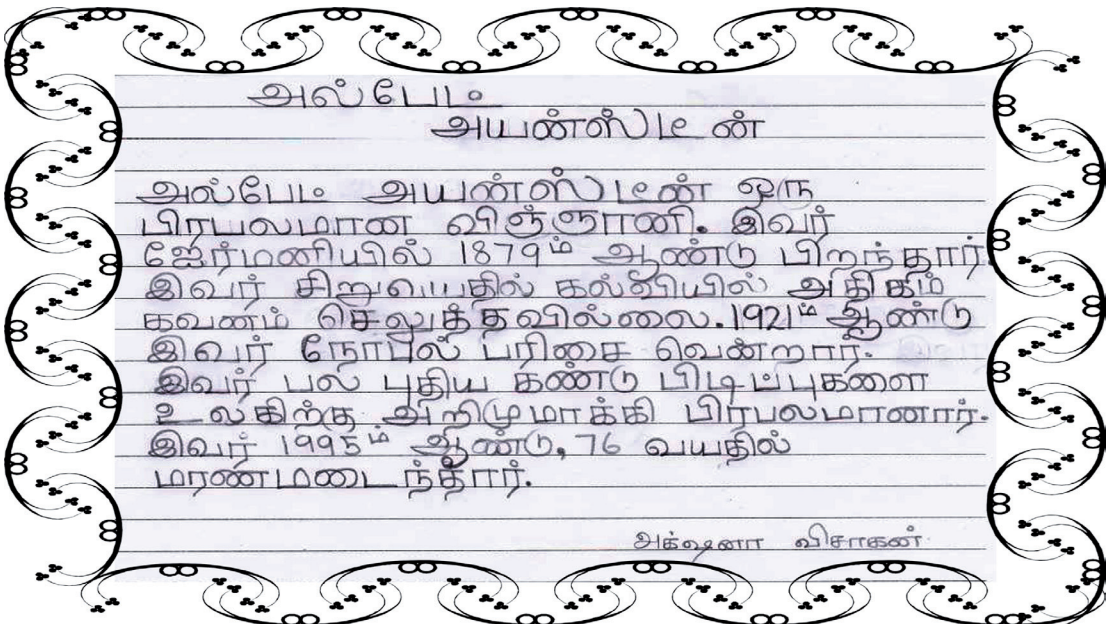 அல்பேட்
அயண்ஸ்டீன்
அல்பேட் அயண்ஸ்டீண் ஒரு
பிரபலமான விஞ்ஞானி. இவர்
ஜேர்மணியில் 1879ம் ஆண்டு பிறந்தார்.
இவர் சிறுவயதில் கல்வியில் அதிகம்
கவனம் செலுத்தவில்லை. 1921ம் ஆண்டு
இவர் நோபல் பரிசை வென்றார்.
இவர் பல புதிய கண்டு பிடிப்புகளை
உலகிற்கு அறிமுமாக்கி பிரபலமானார்.
இவர் 1995ம் ஆண்டு, 76 வயதில்
மரணமடைந்தார்.
அக்‌ஷனா விசாகன்